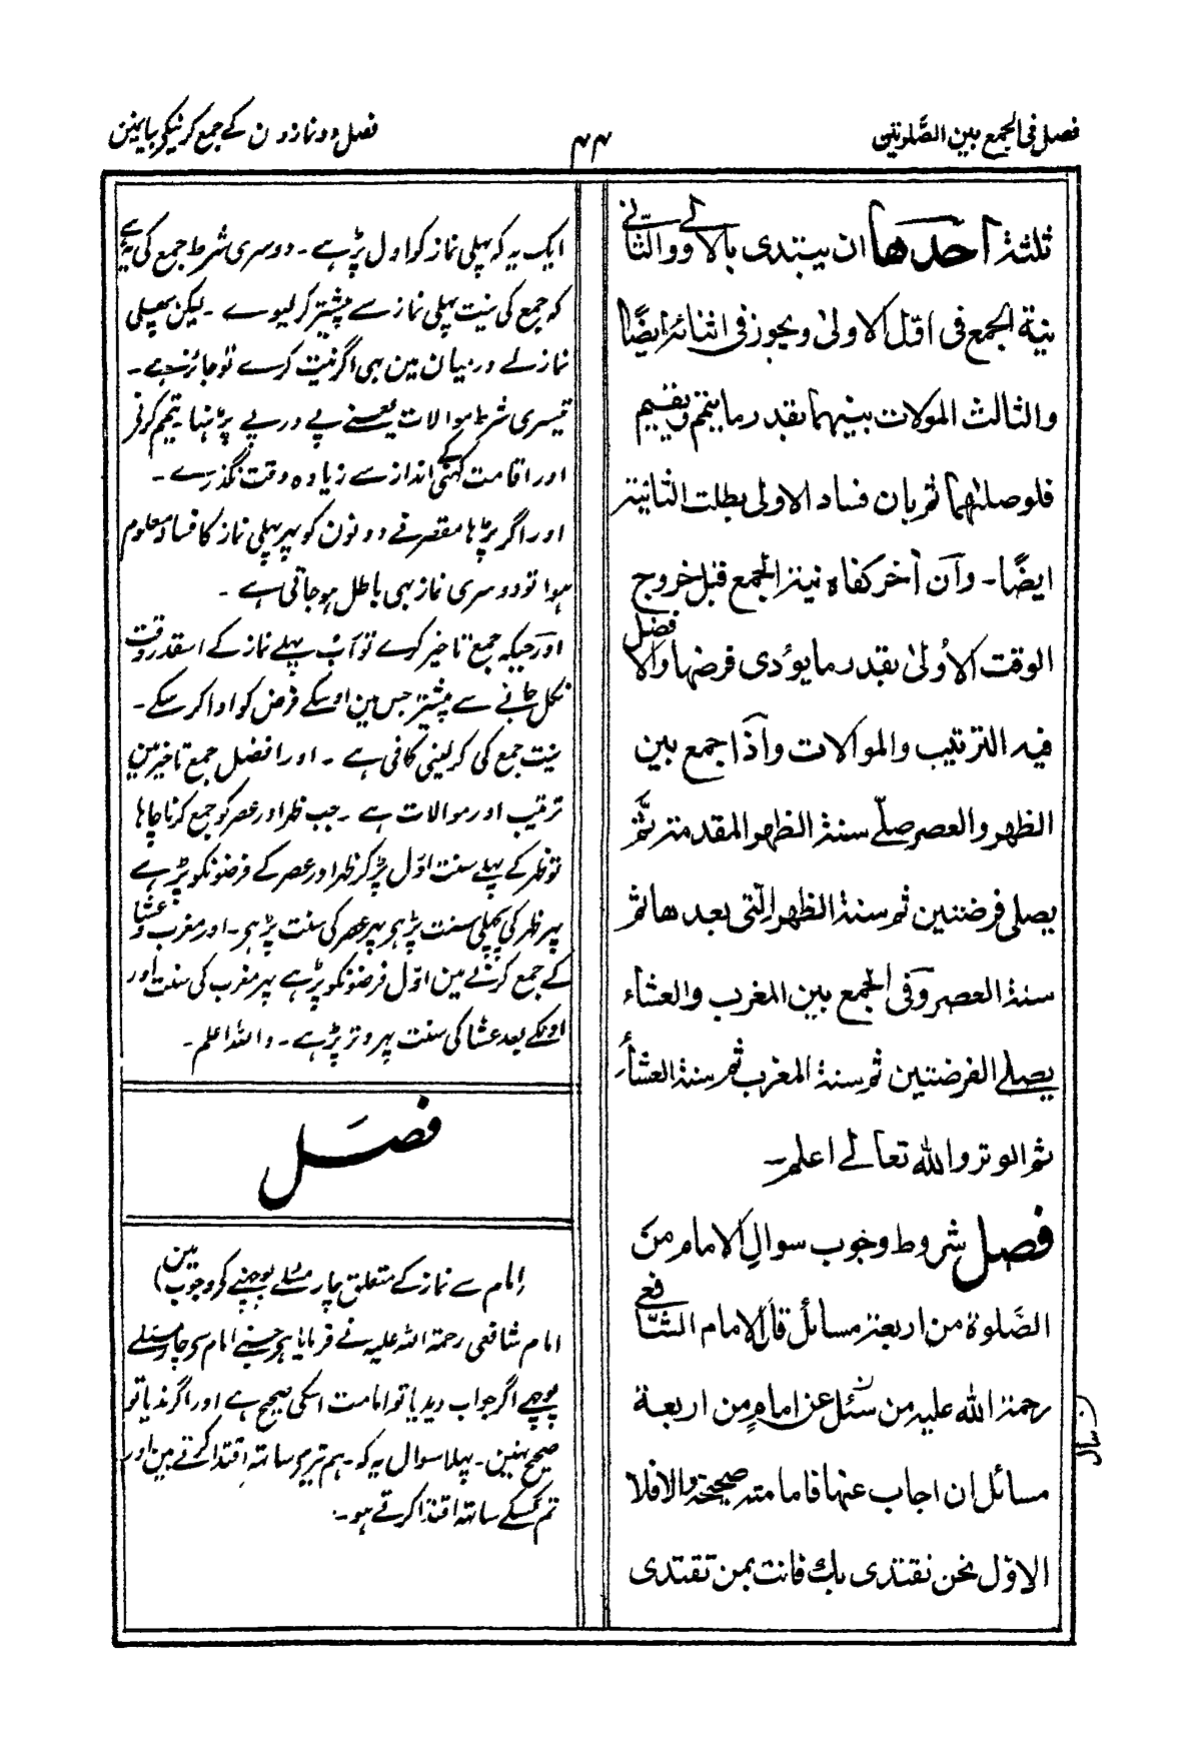 فصل فی الجمع بین الصّلوٰتین
۴۴
فصل دو نمازون کے جمع کرنیکے بیانمین
ثلثۃ احدها ان یبتدی بالاولیٰ والثانی
نیۃ الجمع فی اوّل الاولیٰ ویجوز فی اثنائہ ایضًا
والثالث الموالات بینهما بقدر ما یتمم ویقیم
فلو صلّاهما ثم بان فساد الاولی بطلت الثانیۃ
ایضًا۔ وان اخر کفاه نیۃ الجمع قبل خروج
الوقت الاُولیٰ بقدر ما یؤدی فرضها والافضل
فیہ الترتیب والموالات واذا جمع بین
الظهر والعصر صلّے سنۃ الظهر المقدمۃ ثم
یصلی فرضتین ثم سنۃ الظهر التی بعدها ثم
سنۃ العصر وفی الجمع بین المغرب والعشاء
یصلے الفرضتین ثم سنۃ المغرب ثم سنۃ العشاء
ثم الوتر واللہ تعالےٰ اعلم۔
فصل شروط وجوب سوال الامام من
الصّلوة من اربعۃ مسائل قال الامام الشافعی
رحمۃ اللہ علیہ من سُئل عن امامٍ من اربعۃ
مسائل ان اجاب عنها فامامتہ صحیحۃ والا فلا
الاوّل نحن نقتدی بك فانت بمن تقتدی
ایک یہ کہ پہلی نماز کو اول پڑہے۔ دوسری شرط جمع کی یہ ہے
کہ جمع کی نیت پہلی نماز سے پیشتر کر لیوے۔ لیکن پہلی
نماز کے درمیان مین بہی اگر نیت کرے تو جائز ہے۔
تیسری شرط موالات یعنے پے درپے پڑہنا تیمم کرنے
اور اقامت کہنے کی انداز سے زیادہ وقت نگذرے۔
اور اگر پڑہا مقصر نے دونون کو پہر پہلی نماز کا فساد معلوم
ہوا تو دوسری نماز بہی باطل ہوجاتی ہے۔
اور جبکہ جمع تاخیر کرے تو اب پہلے نماز کے اسقدر وقت
نکل جانے سے پیشتر جس مین اوسکے فرض کو ادا کر سکے۔
نیت جمع کی کر لینی کافی ہے۔ اور افضل جمع تاخیر مین
ترتیب اور موالات ہے۔ جب ظہر اور عصر کو جمع کرنا چاہا
تو ظہر کے پہلے سنت اوّل پڑکر ظہر اور عصر کے فرضونکو پڑہے
پہر ظہر کی پچہلی سنت پڑہو پہر عصر کی سنت پڑہو۔ اور مغرب و عشا
کے جمع کرنے مین اوّل فرضونکو پڑہے پہر مغرب کی سنت اور
اوسکے بعد عشا کی سنت پہر وتر پڑہے۔ واللہ اعلم۔
فصل
(امام سے نماز کے متعلق چار مسئلے پوچہنے کے وجوب مین)
امام شافعی رحمۃ اللہ علیہ نے فرمایا ہر جسنے امام سے چار مسئلے
پوچہے اگر جواب دیدیا تو امامت اسکی صحیح ہے اور اگر ندیا تو
صحیح نہین۔ پہلا سوال یہ کہ۔ ہم تیرے ساتہ اقتدا کرتے ہین اور
تم کسکے ساتہ اقتدا کرتے ہو۔